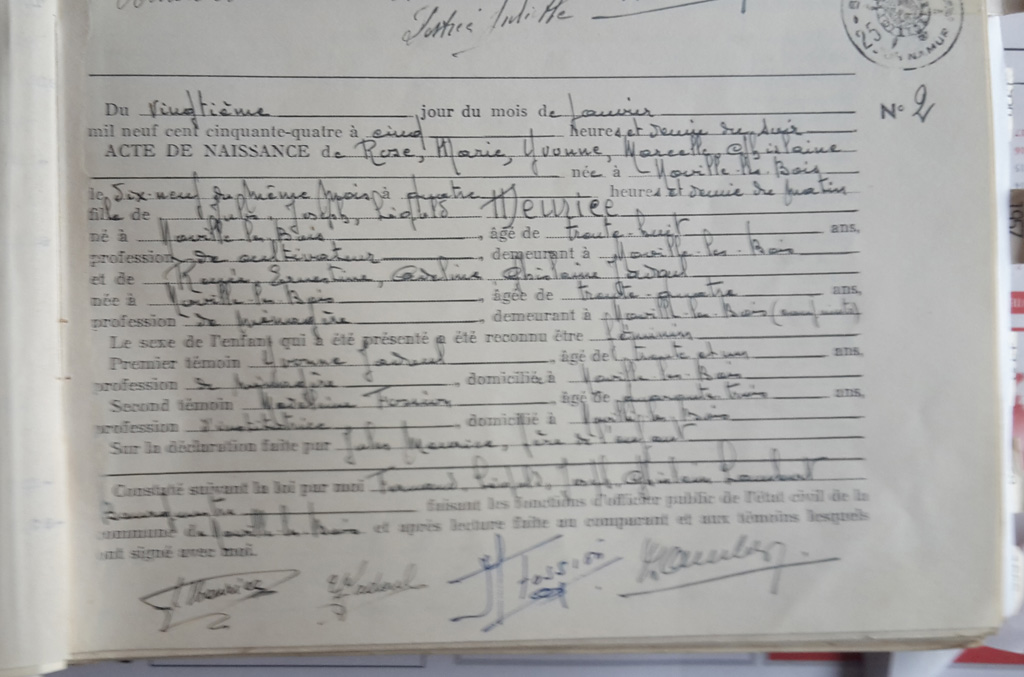 Justice Juliette
25
NAMUR
N° 2
Du vingtième jour du mois de Janvier
mil neuf cent cinquante-quatre à cinq heures et demie du soir
ACTE DE NAISSANCE de Rose, Marie, Yvonne, Marcelle, Ghislaine
née à Noville-les-Bois
le dix-neuf du même mois à quatre heures et demie du matin
fille de Jules, Joseph, Léopold Meurice
né à Noville les Bois, âgé de trente-huit ans,
profession de cultivateur, demeurant à Noville-les-Bois
et de Ernestine, Ghislaine
née à Noville-les-Bois, âgée de trente-quatre ans,
profession de ménagère, demeurant à Noville-les-Bois (conjoints)
Le sexe de l'enfant qui a été présenté a été reconnu être féminin
Premier témoin Yvonne, âgé de trente et un ans,
profession de ménagère, domicilié à Noville-les-Bois
Second témoin Madeleine, âgé de quarante-trois ans,
profession d'institutrice, domicilié à Noville-les-Bois
Sur la déclaration faite par Jules Meurice, père de l'enfant
Constaté suivant la loi par moi Fernand, Léopold, Joseph, Ghislain Lambert
Bourgmestre faisant les fonctions d'officier public de l'état civil de la
commune de Noville-les-Bois et après lecture faite au comparant et aux témoins lesquels
ont signé avec moi.
JMeurice